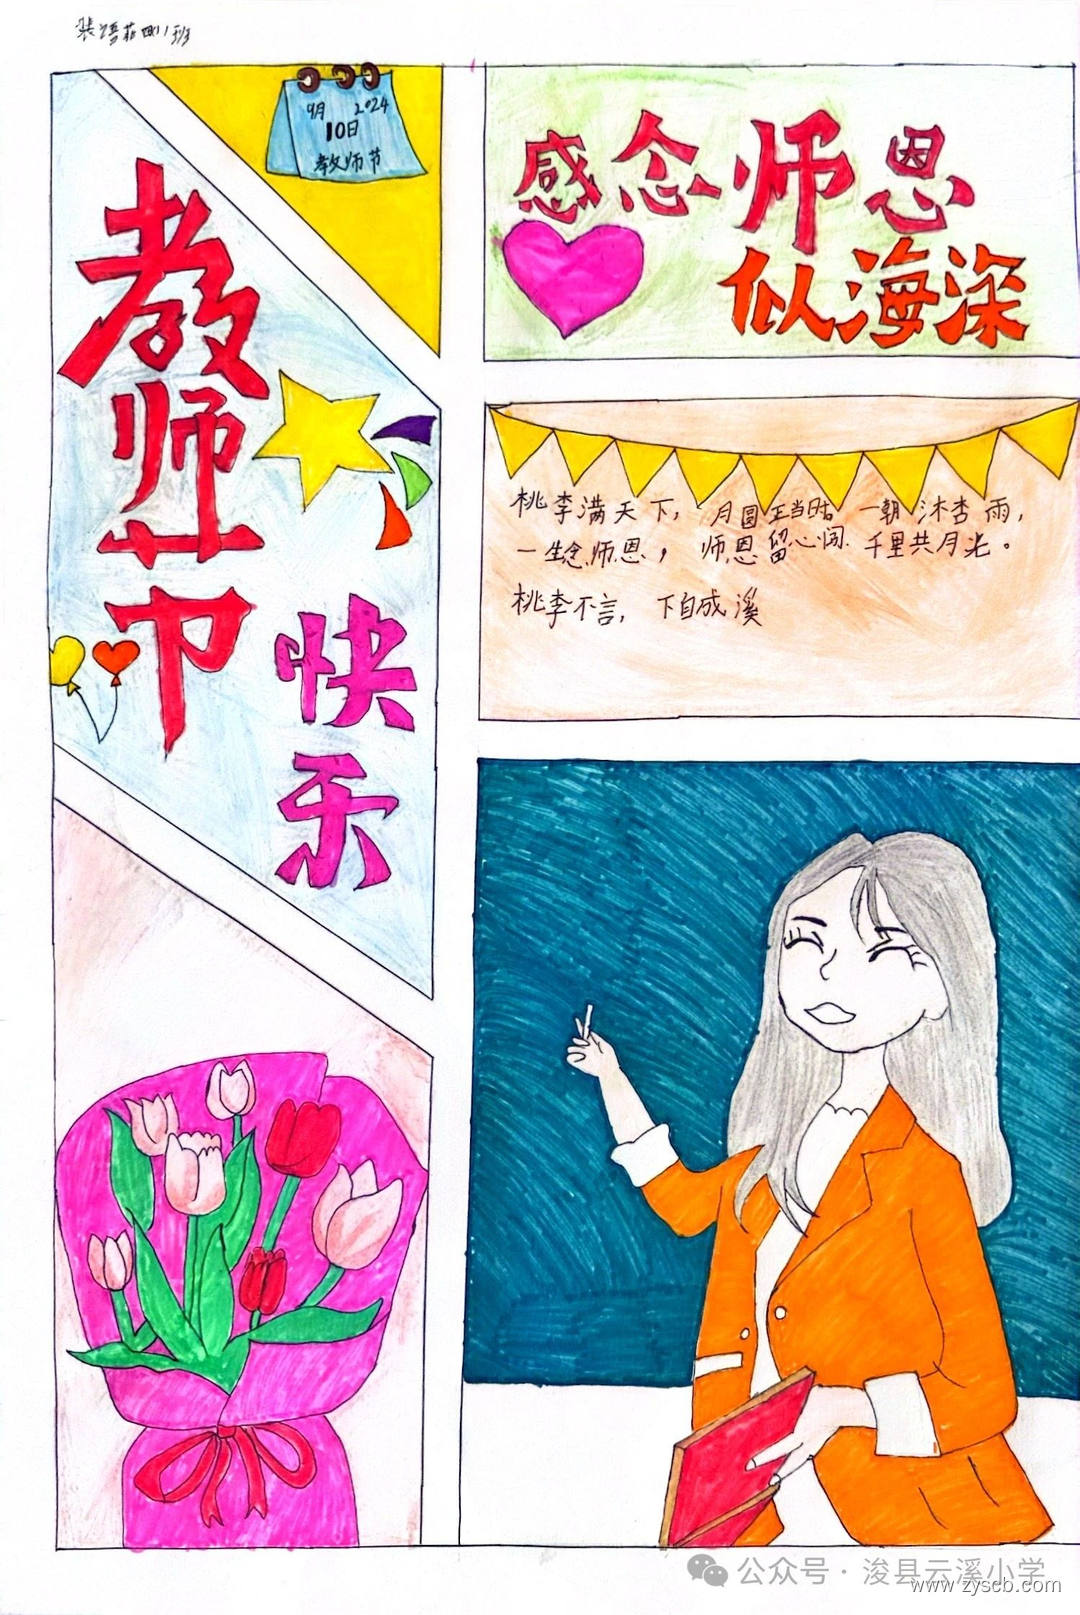 张语菲四11班
9月 2024
10日
教师节
教师节
快乐
感念师恩
似海深
桃李满天下, 月圆正当时 一朝沐杏雨,
一生念师恩, 师恩留心间 千里共月光。
桃李不言, 下自成溪
公众号·浚县云溪小学
www.zyscb.com